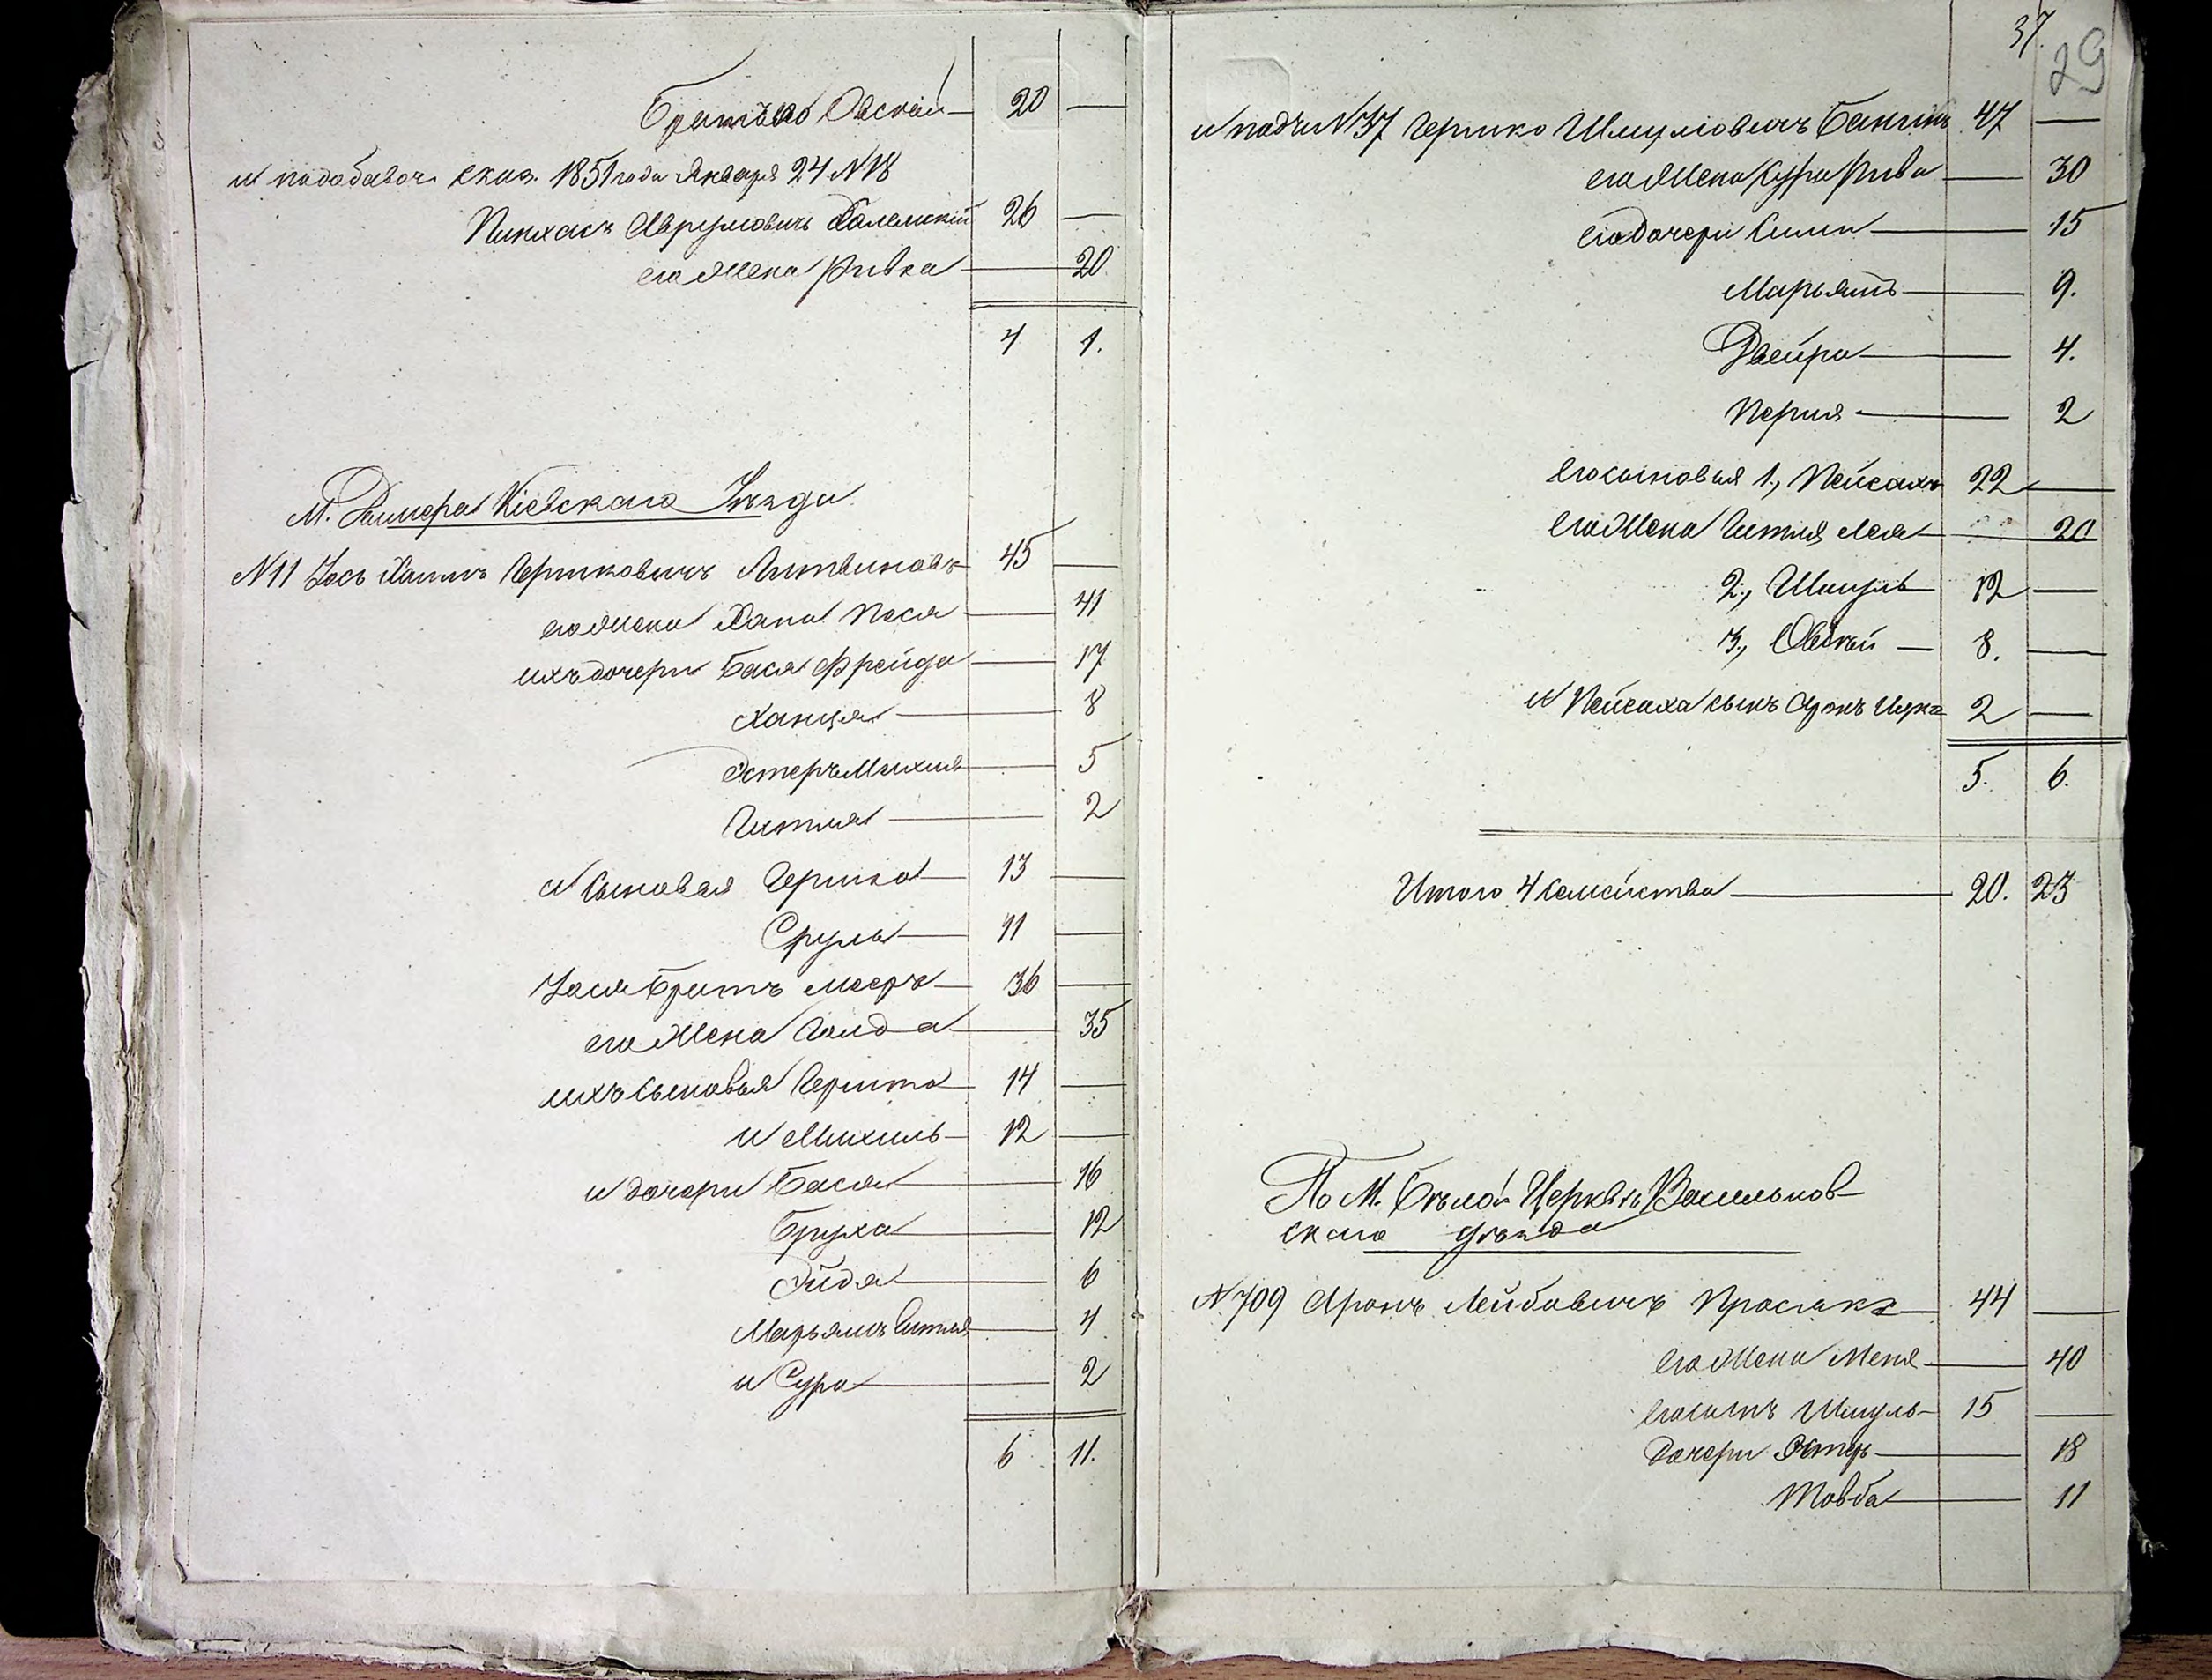 Братъ его Овсѣй — 20 —
и по добавоч. сказ. 1851 года Января 24 N 18
Пинхасъ Аврумовичъ 26 —
его жена Ривка — 20
4 1.
М. Кіевскаго Уѣзда
N 11 Іось Хаимъ Гершковичъ Литвиновъ 45 —
его жена Хана Песя — 41
ихъ дочери Бася Фрейда — 17
Ханця — 8
Эстеръ Михля — 5
Гитля — 2
и сыновья Гершко — 13 —
Сруль — 11 —
Іося братъ Мееръ — 36 —
его жена Голда — 35
ихъ сыновья Гершко — 14 —
и Михиль — 12 —
и дочери Бася — 16
Бруха — 12
Эйдя — 6
Марьямъ Гитля — 4
и Сура — 2
6 11.
37.
29
и подъ N 37 Гершко Шмулювичъ 47 —
его жена Сура Рива — 30
его дочери Сими — 15
Марьямъ — 9.
Двейра — 4.
Перля — 2
его сыновья 1., Пейсахъ 22 —
его жена Гитля Лея — 20
2., Шмуль 12 —
3., Овсѣй — 8. —
и Пейсаха сынъ Аронъ 2 —
5. 6.
Итого 4 семейства — 20. 23
По М. Бѣлой Церквѣ Васильков-
скаго уѣзда
N 709 Аронъ Лейбовичъ Просякъ — 44 —
его жена Меня — 40
его сынъ Шмуль — 15 —
дочери Эстеръ — 18
Товба — 11